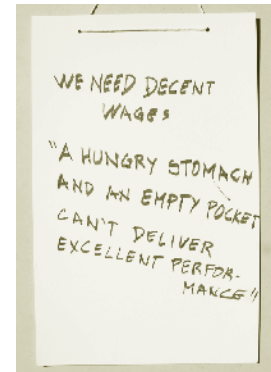 WE NEED DECENT
WAGES
"A HUNGRY STOMACH
AND AN EMPTY POCKET
CAN'T DELIVER
EXCELLENT PERFOR-
MANCE"